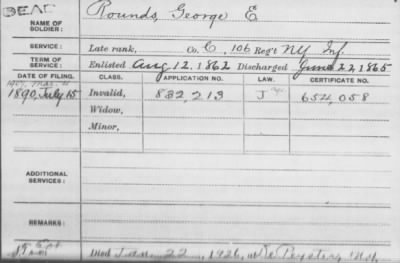 DEAD
NAME OF SOLDIER: Rounds, George E
SERVICE: Late rank, Co. C, 106 Reg't NY Inf.
TERM OF SERVICE: Enlisted Aug 12, 1862 Discharged June 22, 1865
DATE OF FILING. CLASS. APPLICATION NO. LAW. CERTIFICATE NO.
1890, July 15 Invalid, 832,213 J 654,058
Widow,
Minor,
ADDITIONAL SERVICES:
REMARKS:
Died Jan. 22, 1926, at De Peyster, N.Y.